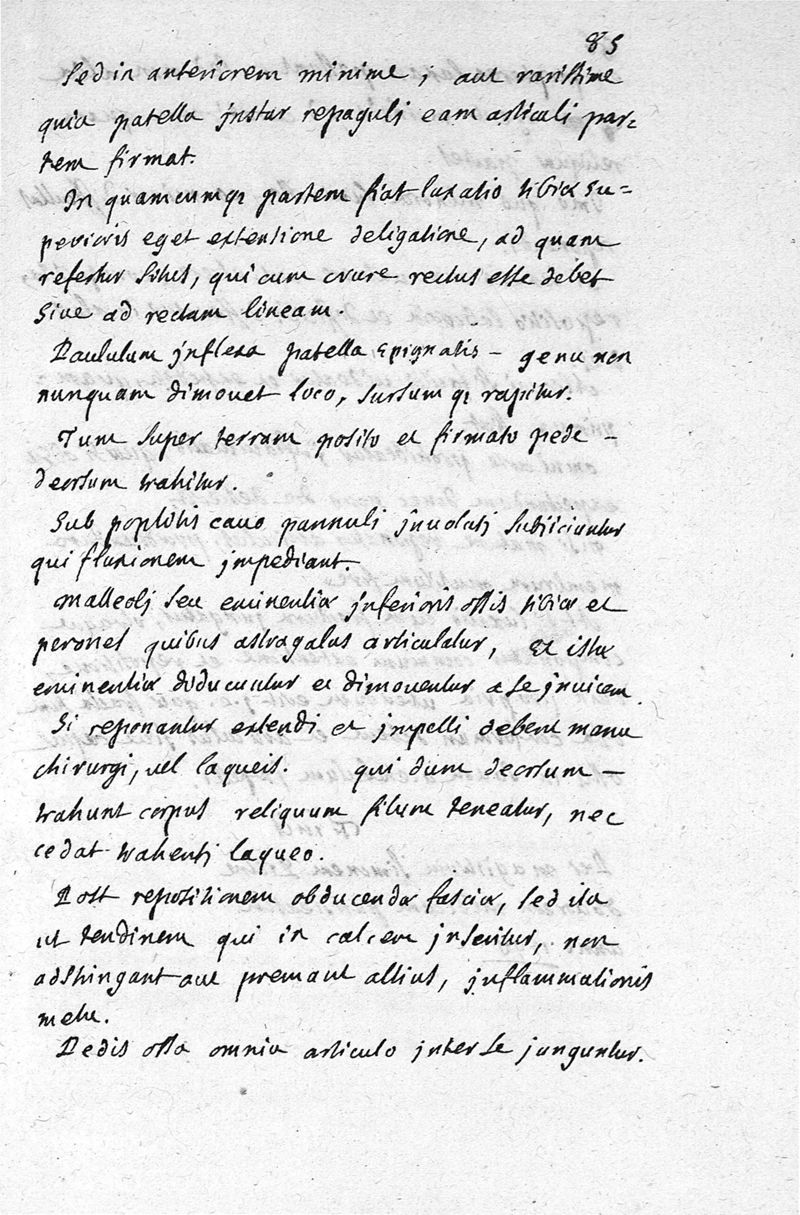 85
Sed in anteriorem minime, aut rarissime
quia patella instar repaguli eam articuli par=
tem firmat.
In quamcumq; partem fiat luxatio tibiæ su=
perioris eget extentione deligatione, ad quam
refertur situs, qui cum crure rectus esse debet
sive ad rectam lineam.
Paululum inflexa patella Epignatis – genu non
nunquam dimovet loco, sursum q; rapitur.
Tum super terram posito et firmato pede –
deorsum trahitur.
Sub poplitis cavo pannuli involuti subjiciuntur
qui fluxionem impediant.
Malleoli seu eminentiæ inferioris ossis tibiæ et
perones quibus astragalus articulatur, Et istæ
eminentiæ diducuntur et dimoventur a se invicem.
Si reponantur extendi et impelli debent manu
chirurgi, vel laqueis. qui dum deorsum –
trahunt corpus reliquum filum teneatur, nec
cedat trahenti laqueo.
Post repositionem obducendæ fasciæ, sed ita
ut tendinem qui in calcem inseritur, non
adstringant aut premant altius, inflammationis
metu.
Pedis ossa omnia articulo inter se junguntur.